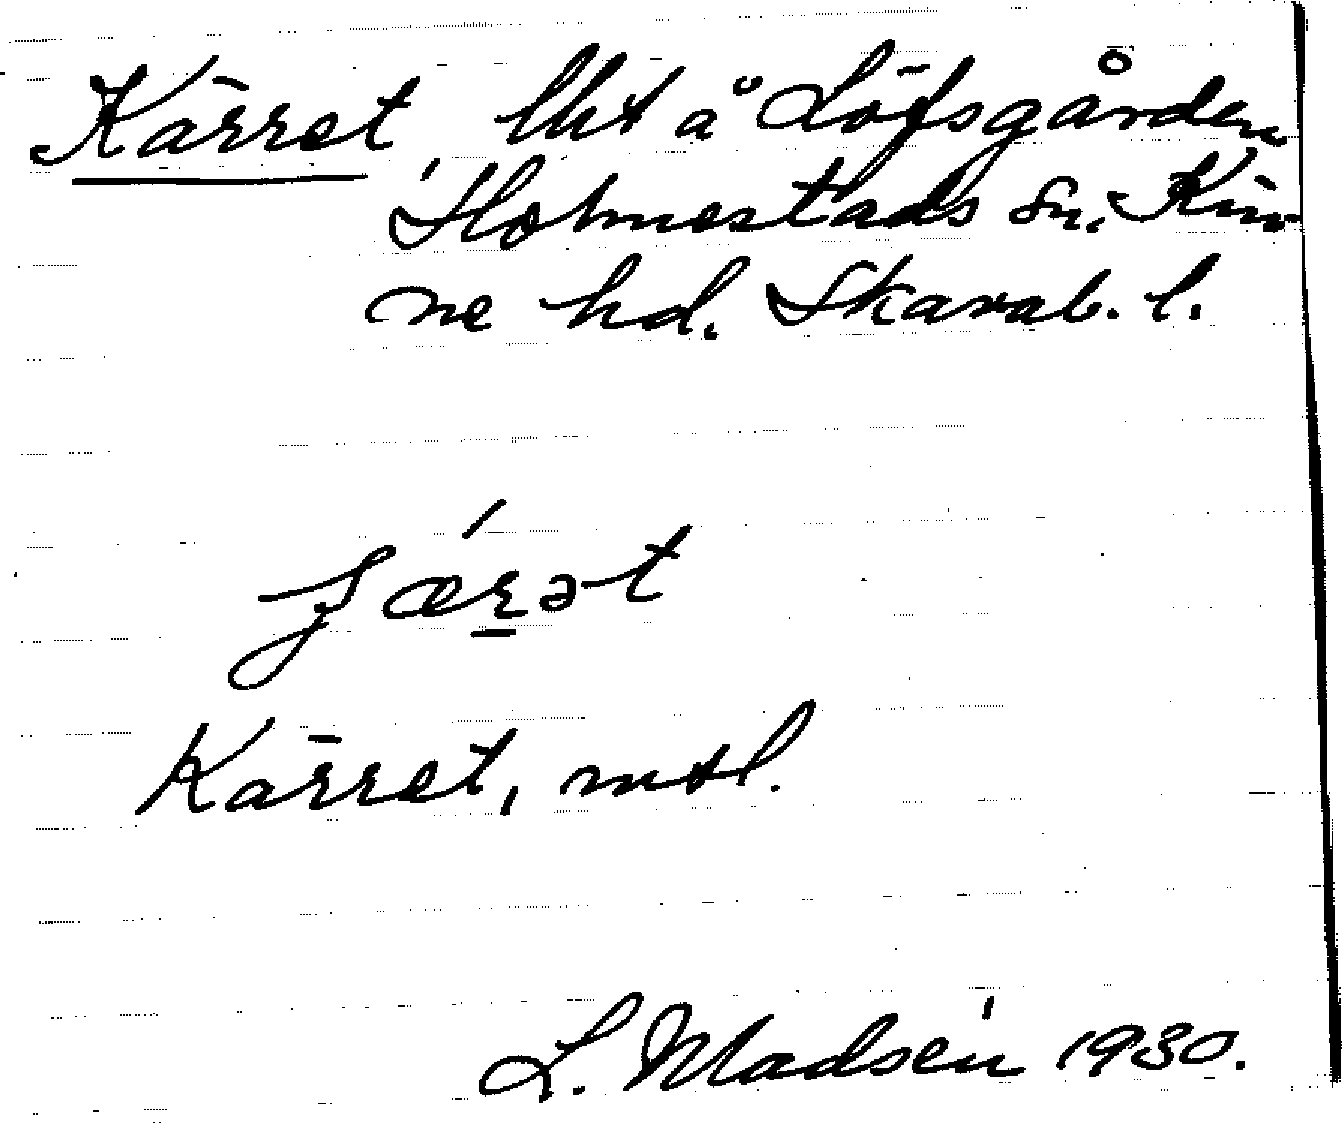 Kärret, lht å Löfsgården
Holmestads sn. Kin-
ne hd. Skarab. l.
ʃǽrət
Kärret, mtl.
L. Madsén 1930.